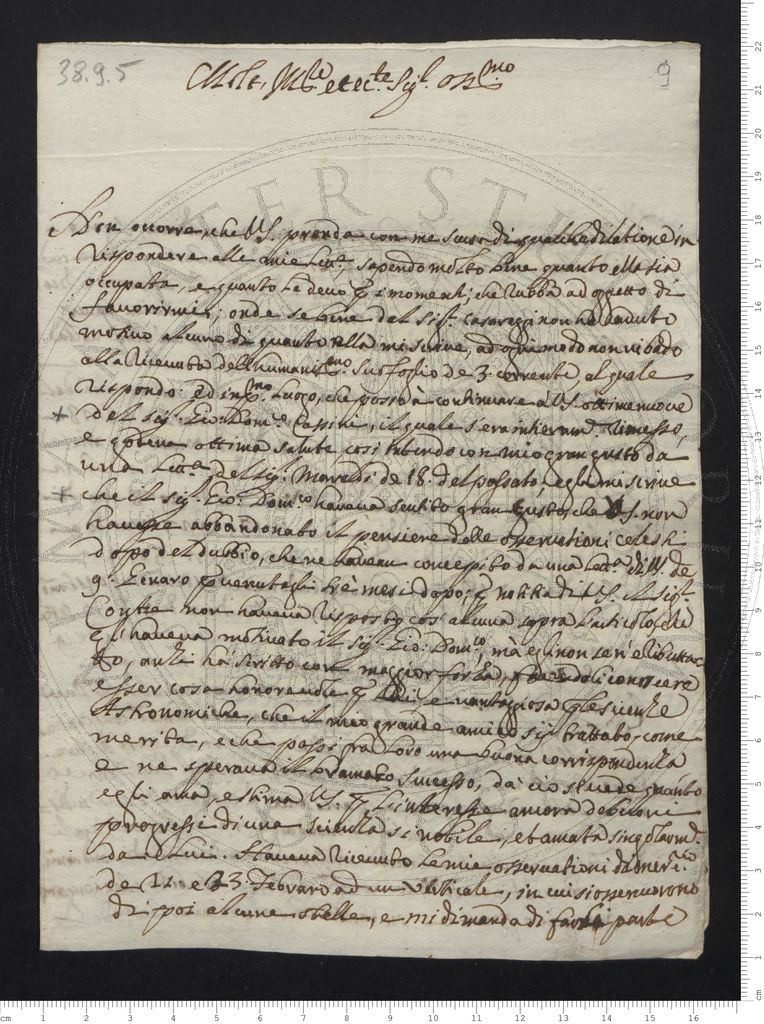 38.9.5
9
Molt. Ill.re et ecc.te Sig.r oss.mo
Non occorre, che V.S. prenda con me scusa di qualche dilatione in
rispondere alle mie lett.e, sapendo molto bene quanto ella sia
occupata, e quanto le devo p i momenti, che rubba ad oggetto di
favorirmi; onde se bene dal Sig.r Casaregi non hò havuto
motivo alcuno di quanto ella mi scrive, ad ogni modo non ritardo
alla ricevuta dell'humaniss.mo suo foglio de 3. corrente, al quale
rispondo. Ed in p.mo luogo, che posso a continuare a V.S. ottime nuove
del sig. Gio: Dom.co Cassini, il quale s'era intieram.te rimesso,
e godeva ottima salute, così havendo con mio gran gusto da
una lett.a del sig. Maraldi de 18. del passato, egli mi scrive
che il sig. Gio: Dom.co haveva sentito gran gusto, che V.S. non
havesse abbandonato il pensiere delle osservationi celesti
dopo del dubbio, che ne haveva concepito da una lett.a di V.S. de
9. Genaro pervenutagli trè mesi dopo; p notitia di V.S. il sig.r
Contre non haveva risposto cos'alcuna sopra l'articolo, chè
gl'haveva motivato il sig. Gio: Dom.co, mà egli non se n'è ributta-
to, anzi hà scritto con maggior forza, facendoli conoscere
esser cosa honorevole p lui e vantaggiosa p le scienze
Astronomiche, che il mio grande amico sij trattato, come
merita, e che passi fra loro una buona corrispondenza
e ne sperava il bramato successo, da ciò si vede quanto
egli ama, e stima V.S. p l'interesse ancora de buoni
progressi di una scienza si nobile, et amata singolarm.te
da lui. Haveva ricevuto le mie osservationi
de 22. e 23. Febraro ad un verticale, in cui si osservorono
di poi alcune stelle, e mi dimanda di farli parte